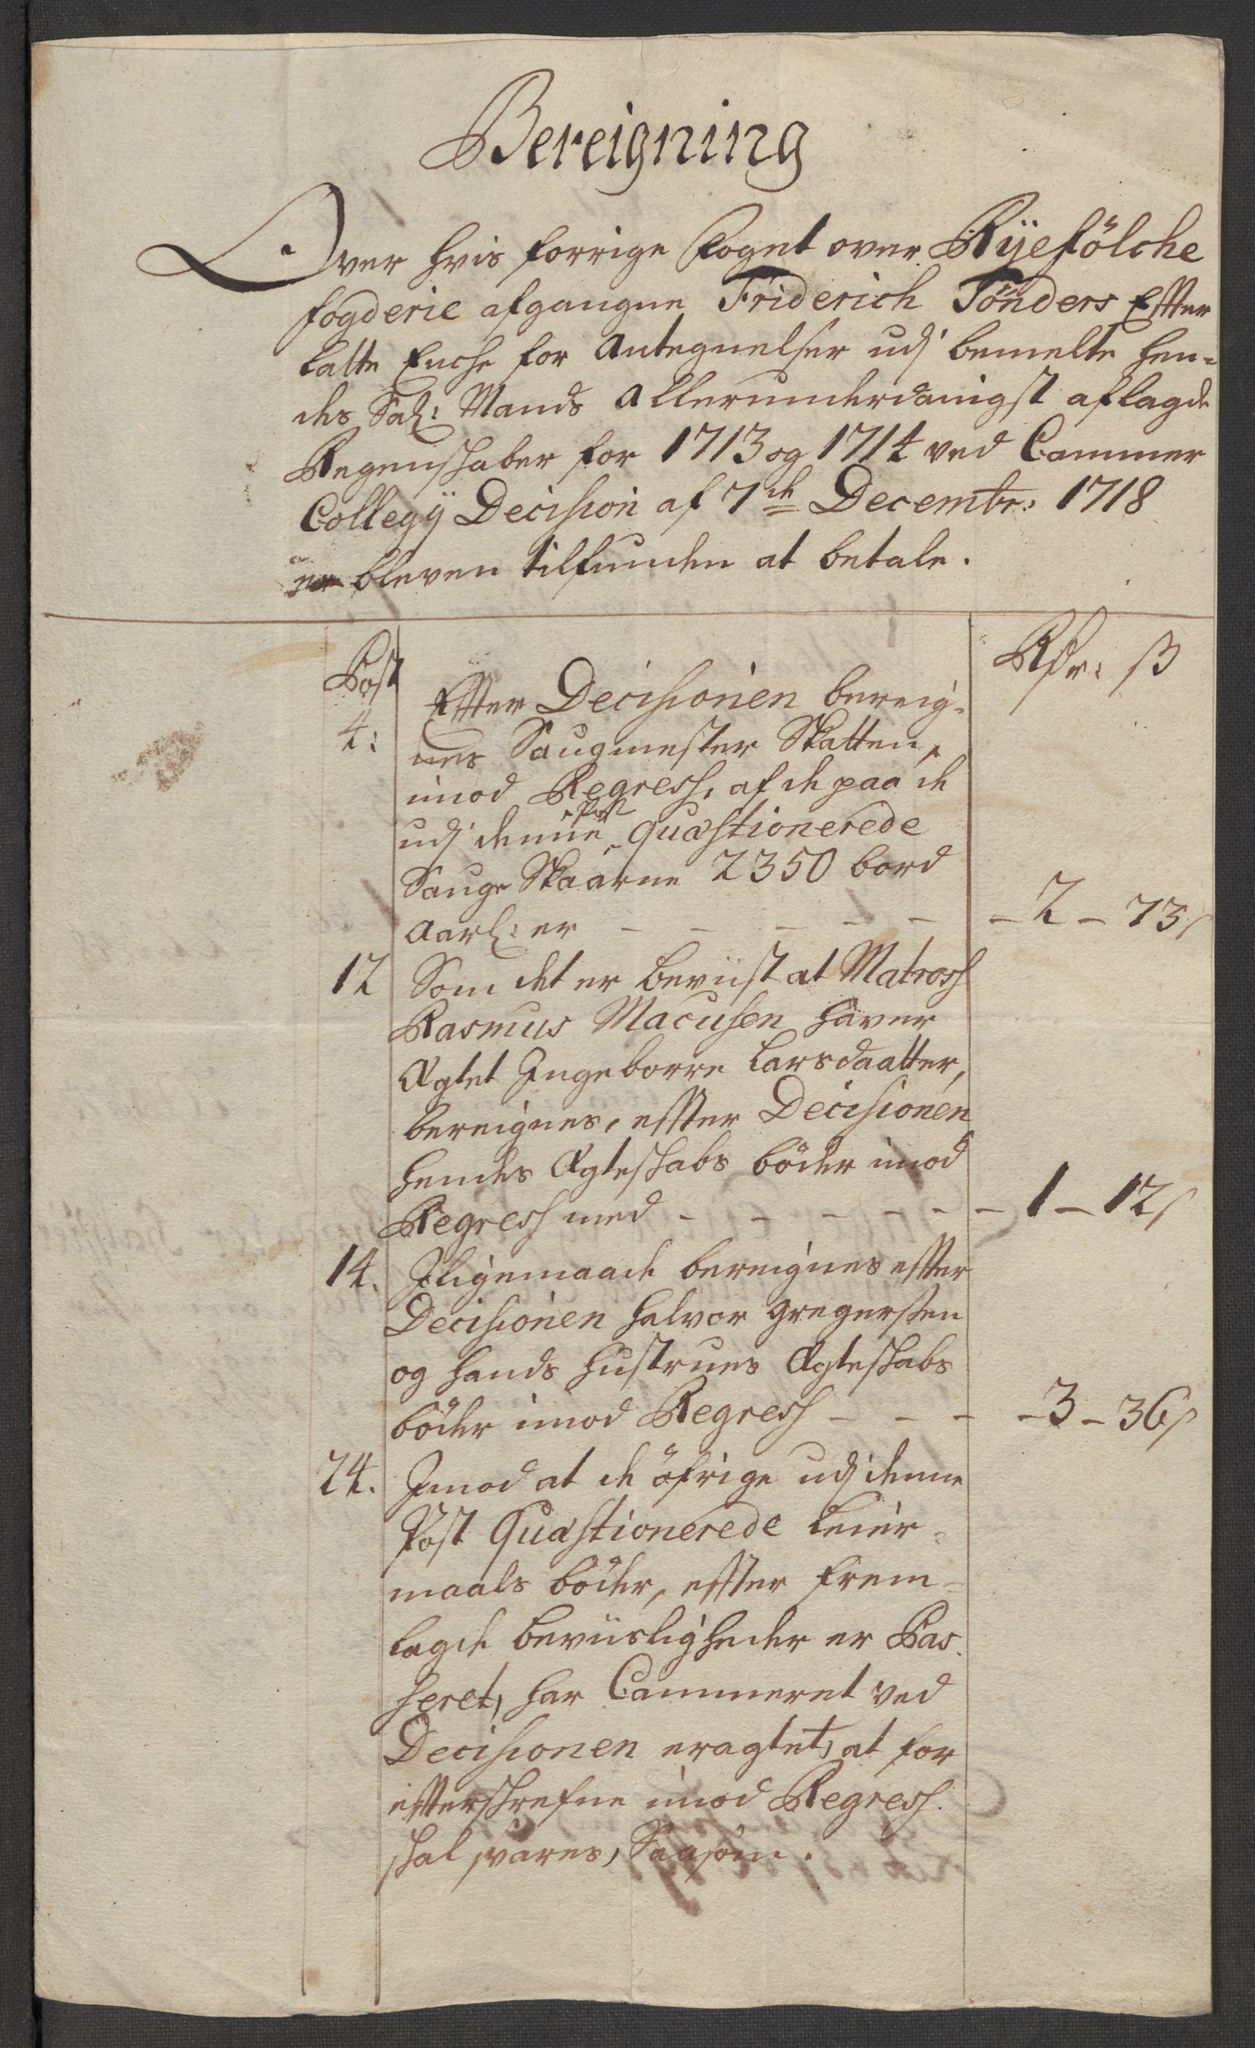 Bereigning
Over hvis forrige Foget over Ryefölche
fogderie afgangne Friderich Tönders Effter
latte Enche for Antegnelser udj bemelte hen-
des Sal: Mands Allerunderdanigst aflagde
Regenschaber for 1713 og 1714 ved Cammer
Collegÿ Decision af 7de Decembr: 1718
er bleven tilfunden at betale.
Post Rdr: ß
Effter Decisionen bereig-
4: nes Saugmester Skatten,
imod Regress, af de paa de
udj denne Post Quæstionerede
Sauge Skaarne 2350 bord
Aarl: er - - - - - - 2 - 73/
12 Som det er beviist at Matross
Rasmus Macusen haver
Ægtet Ingeborre Larsdaatter,
bereignes, effter Decisionen
hendes Ægteschabs böder imod
Regress med - - - - - - 1 - 12/
14. Iligemaade bereignes effter
Decisionen Halvor Gregersen
og hands Hustrues Ægteschabs
böder imod Regress - - - - 3 - 36/
24. Imod at de öfrige udj denne
Post Quæstionerede Leier-
maals böder, effter frem-
lagde beviisligheder er Pas-
seret, har Cammeret ved
Decisionen eragtet, at for
effterschrefne imod Regress
schal svares, Saasom.